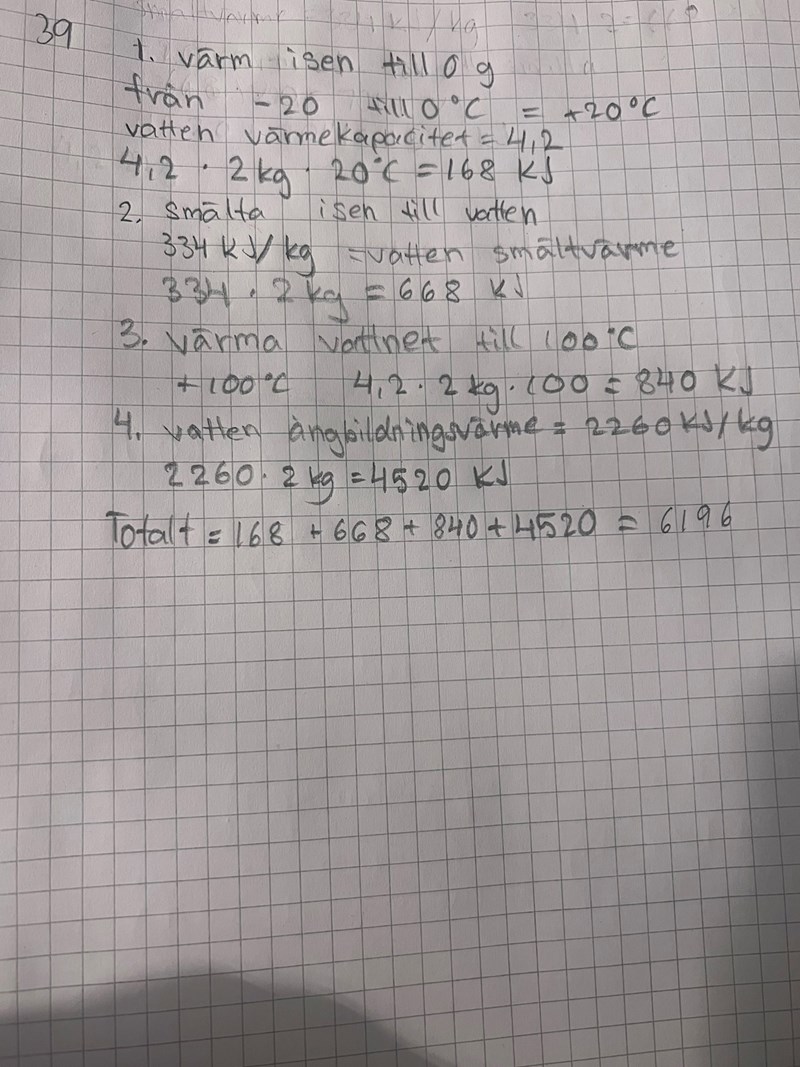 39
1. värm isen till 0 g
från -20 till 0°C = +20°C
vatten värmekapacitet = 4,2
4,2 · 2 kg · 20°C = 168 KJ
2. smälta isen till vatten
334 KJ/kg = vatten smältvärme
334 · 2 kg = 668 KJ
3. värma vattnet till 100°C
+100°C 4,2 · 2 kg · 100 = 840 KJ
4. vatten ångbildningsvärme = 2260 KJ/kg
2260 · 2 kg = 4520 KJ
Totalt = 168 + 668 + 840 + 4520 = 6196